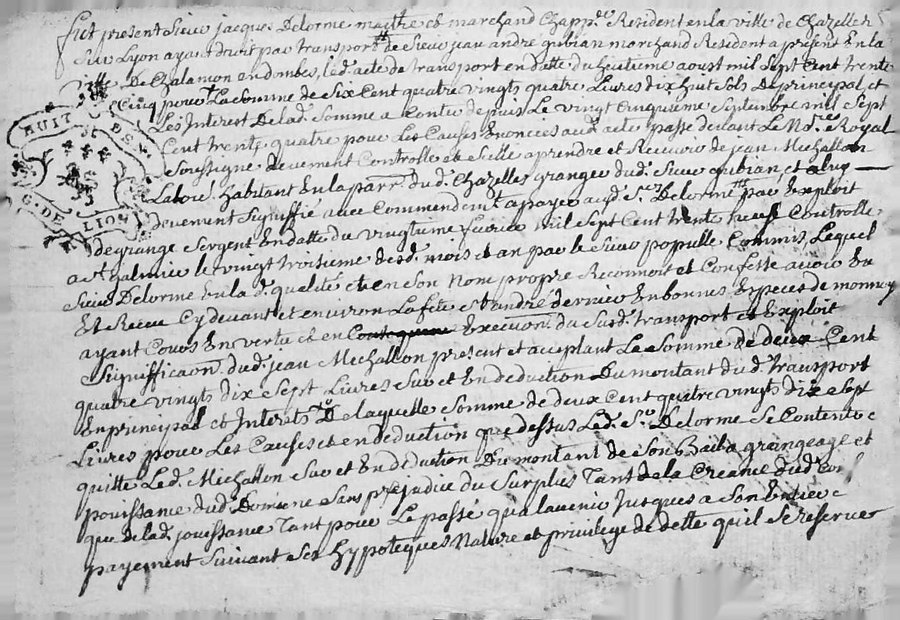 fut present Sieur jacques Delorme maitre et marchand Chapp.r Resident en la ville de Chazelles
Sur Lyon ayant droit par transport de Sieur jean andré gubian marchand Resident a present En la
ville De Chalamon en dombes, led. acte de transport en datte du huitieme aoust mil Sept Cent trente
Cinq pour La Somme de Six Cent quatre vingts quatre Livres dix huit Sols De principal, et
Les Interest De lad. Somme a Conter depuis Le vingt Cinquieme Septembre mil Sept
Cent trente quatre pour Les Causes Enoncées aud. acte passé devant Le No.re Royal
Soussigné deuement Controllé et Scellé a prendre et Recevoir de jean Michallon
Labou.r habitant En la parr. dud. Chazelles granger dud. Sieur gubian, et
deuement Signiffié avec Commendem.t a payer aud. S.r Delorme par Exploit
degrange Sergent En datte du vingtieme fevrier Mil Sept Cent trente neuf Controllé
a St galmier le vingt troisieme desd. mois et an par le Sieur populle Commis, Lequel
Sieur Delorme En lad. qualité et en Son Nom propre Reconnoit et Confesse avoir Eu
Et Receu Cy devant et environ La feste St andré dernier En bonnes Especes de monnoy
ayant Cours En vertu et en Execution du Susd. transport et Exploit
Signiffication dud. jean Michallon present et acceptant La Somme de deux Cent
quatre vingts dix Sept Livres Sur et En deduction Du montant du d. transport
En principal et Interests De laquelle Somme de deux Cent quatre vingts dix Sept
Livres pour Les Causes et en deduction que dessus Led. S.r Delorme Se Contente
quitte Led. Michallon Sur et En deduction Du montant de Son Bail a grangeage et
jouissance dud. Domaine Sans prejudice du Surplus Tant de la Creance dud.
que de lad. jouissance Tant pour Le passé qu a lavenir Jusques a Son Entier
payement Suivant Ses hypoteques Nature et privilege de dette quil Se reserve
HUIT DEN.
G. DE LION